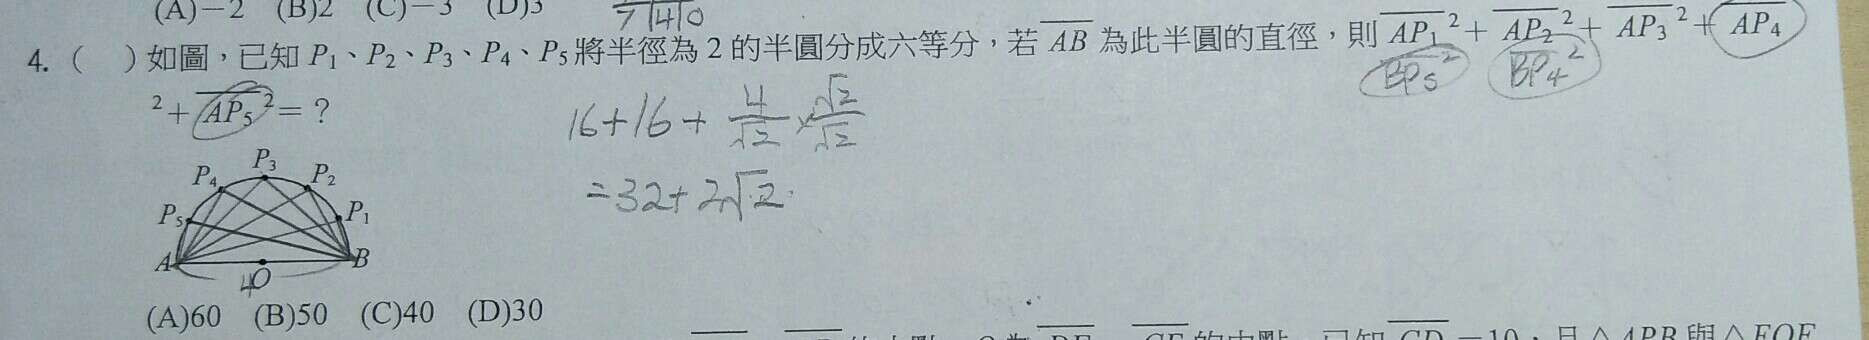 (A)−2 (B)2 (C)−3 (D)3
7 14 0
4. ( )如圖，已知 P₁、P₂、P₃、P₄、P₅將半徑為 2 的半圓分成六等分，若 AB 為此半圓的直徑，則 AP₁² + AP₂² + AP₃² + AP₄
BP₅² BP₄²
² + AP₅² = ?
16+16+ 4/√2 × √2/√2
=32+2√2
P₃
P₄ P₂
P₅ P₁
A O B
4
(A)60 (B)50 (C)40 (D)30
CD =10，且△APB與△EQF